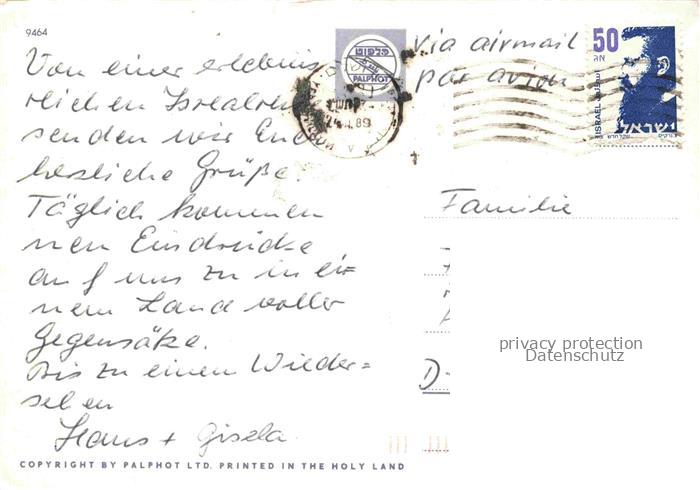 9464
Von einer erlebnis
reichen Israelrei
senden wir Euch
herzliche Grüße.
Täglich kommen
neue Eindrücke
auf uns zu in ei=
nem Land voller
Gegensätze.
Bis zu einem Wieder=
sehen
Hans + Gisela
COPYRIGHT BY PALPHOT LTD. PRINTED IN THE HOLY LAND
פלפוט
PALPHOT
via airmail
par avion
50
אג
ISRAEL
ישראל
Familie
privacy protection
Datenschutz
D-